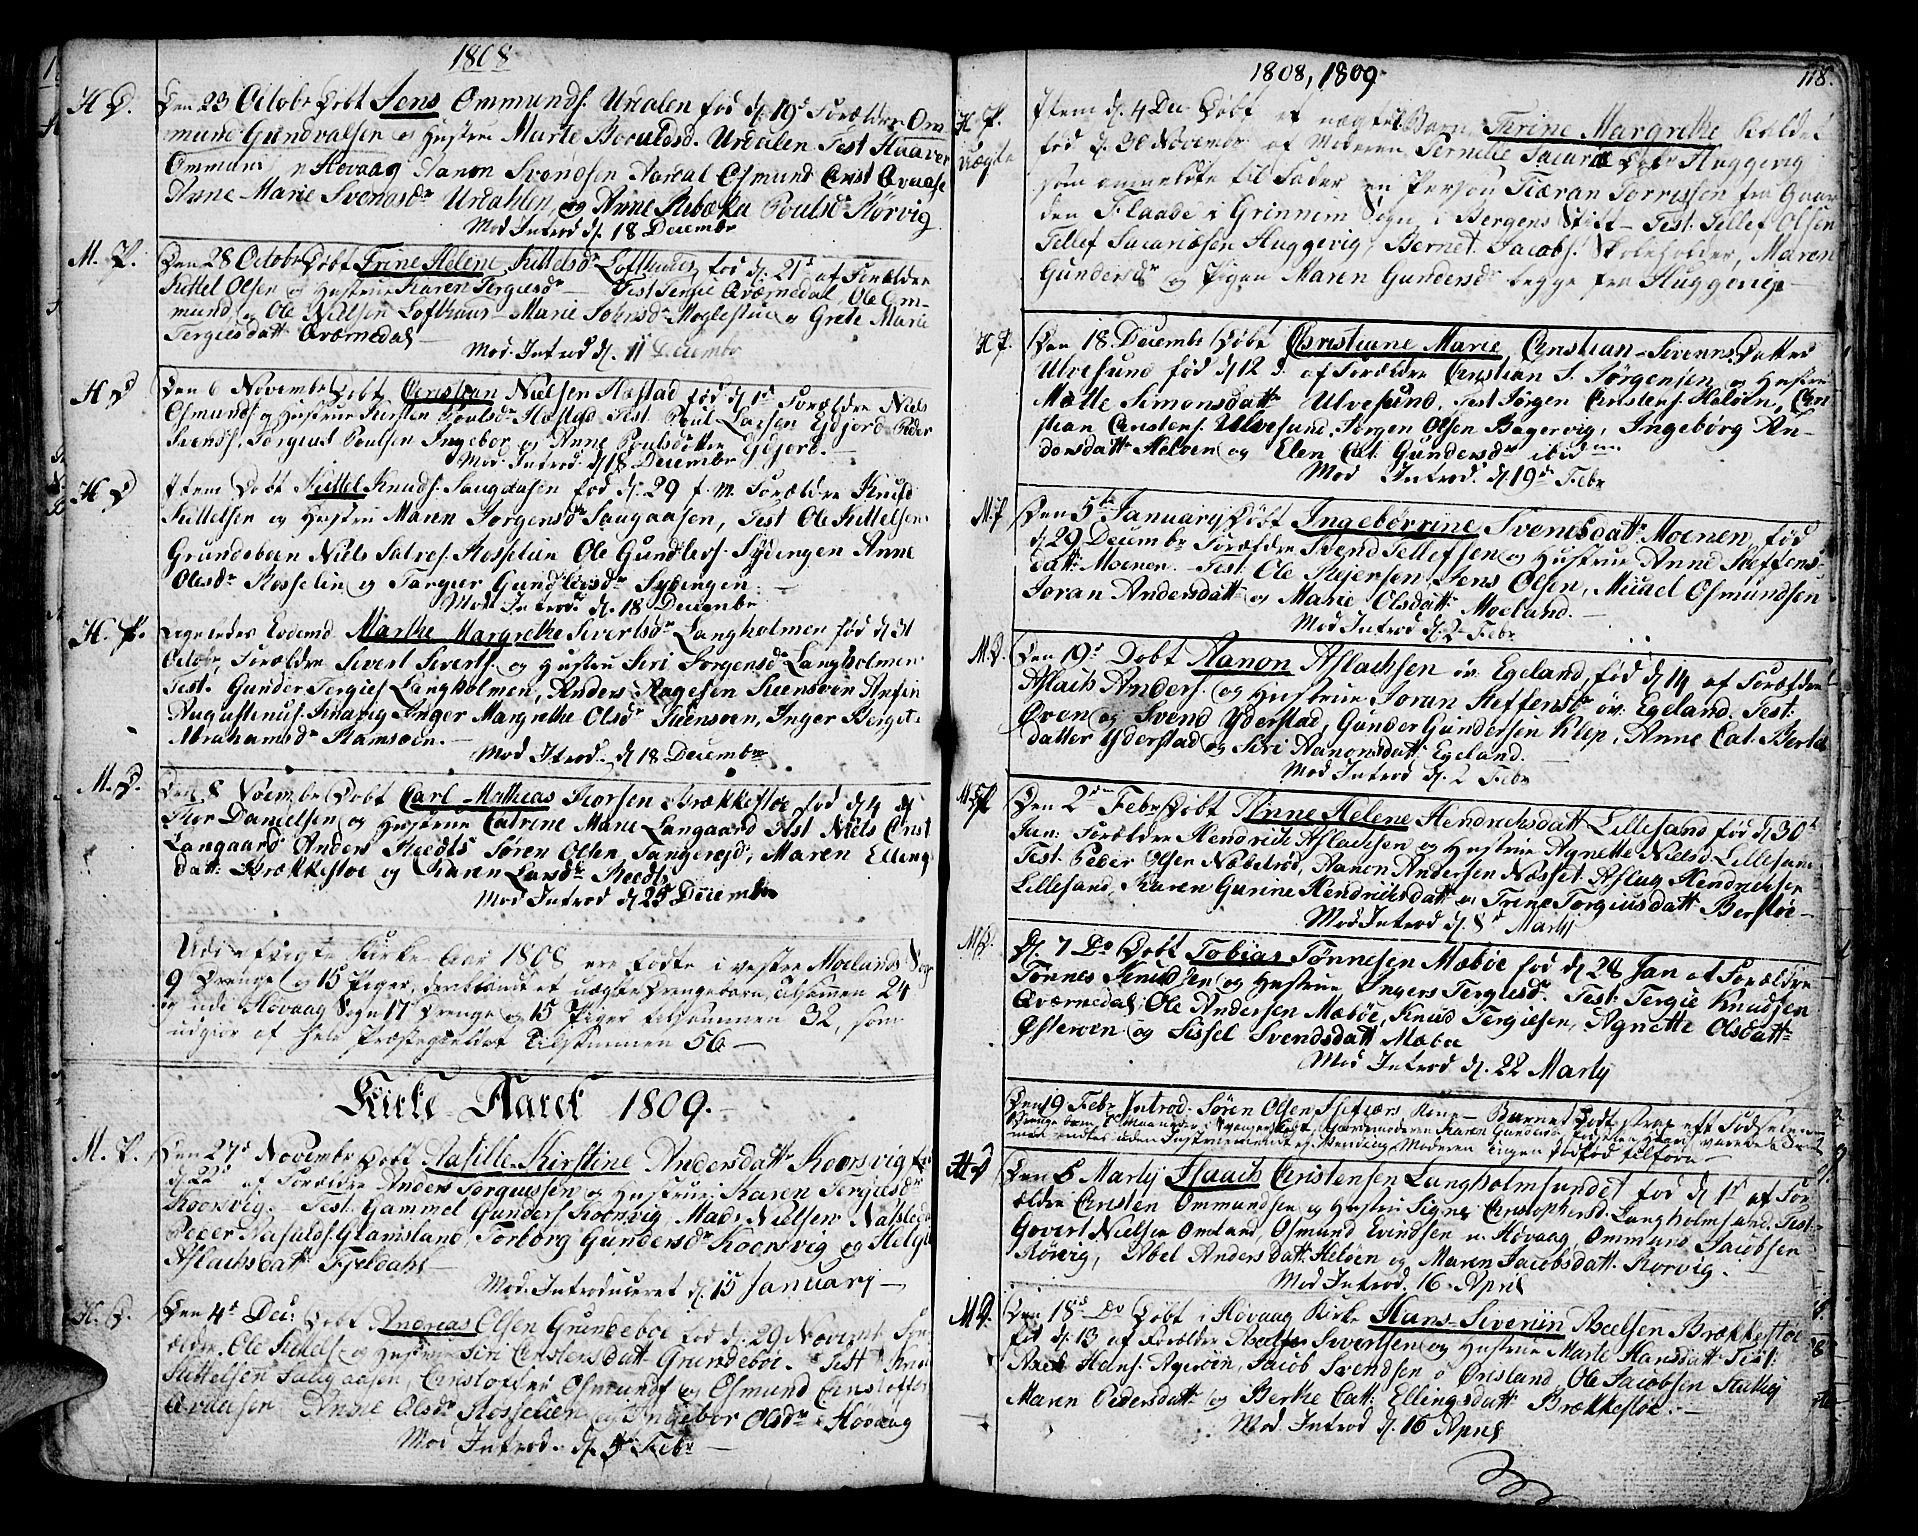 1808
H D. Den 23 Octobr Døbt Jens Ommunds. Urdalen fød d. 19d Forældre Om-
mund Gundvalsen og Hustrue Marte Boruldsd. Urdalen. Test Haaver
Ommunds Hovaag Aanon Svendsen Osmund Christ
Anne Marie Svendsdr Urdahlen, og Anne Rebæka Poulsdr Kørvig
Mod Introd d. 18 Decembr
M. P. Den 28 Octobr Døbt Trine Helene Kittelsd Lofthuus, fød d. 21d af Forældre
Kittel Olsen og Hustrue Karen Tergiesdr Test Tergie Qværnedal, Ole Om-
mund og Ole Nielsen Lofthuus Marie Johnsdr Moglestue og Grete Marie
Tergiesdatt Qværnedal
Mod. Introd d. 11 Decembr
H D Den 6 Novembr Døbt Christian Nielsen Hæstad fød d. 1d Forældre Niels
Osmunds og Hustrue Kirsten Poulsdr Hæstad Test Poul Larsen Ydjord Peder
Svends, Torgius Poulsen Ingebor og Anne Poulsdotter Ydjord.
Mod. Introd. d. 18 Decembr
H D Item Døbt Kittel Knuds. Saugaasen fød d. 29 f. m. Forældre Knud
Kittelsen og Hustrue Maren Jorgensdr Saugaasen, Test Ole Kittelsen
Grundeboen Niels Salves. Rosselien Ole Gundlevs. Sydengen Anne
Olesdr Rosselin og Targier Gundlevsdr Sydingen
Mod Introd d. 18 Decembr
H. P. Ligeledes Marthe Margrethe Sivertsdr Langholmen fød d 31
Octobr, Forældre Sivert Siverts. og Hustrue Siri Jorgensd Langholmen
Test. Gunder Tergies Langholmen, Anders Aagesen Steensoen Anfin
Augustinus. Inger Margrethe Olsdr Steensoen, Inger Birgite
Abrahamsdr Ramsoen.
Mod Itrod. d 18 Decembr
M. D. Den 8 Noembr Døbt Carl Mathias Thorsen Brækkestøe fød d 4 af
Thor Danielsen og Hustrue Catrine Marie Langaard Test Niels Crist
Langaard Anders Reedts Søren Olsen, Maren Elling
datt Brækkestøe og Karen Larsdr Reedts
Mod Introd d 25 Decembr
Udi afvigte Kirke-Aar 1808 ere fødte i vestre Moelands Sogn
9 Drenge og 15 Piger, deriblandt et uægte Drengebarn, alsammen 24
og udi Hovaag Sogn 17 Drenge og 15 Piger tilsammen 32, som
udgiør af hele Præstegieldet tilsammen 56
Kirke-Aaret 1809.
M. P. Den 27d Novembr Døbt Kirstine Andersdatt Koorsvig fød
d 22d af Forældre Anders Torgiussen og Hustrue Karen Tergiesdr
Koorsvig. Test. Gammel Gunders Koorsvig, Mads Nielsen
Peder Glamsland, Torborg Gundersdr Koorsvig og Helge
Aslachsdatt Fjeldahl
Mod. Introduceret d. 15 Januarj
H. D. Den 4d Dec: Døbt Andreas Olsen Grundeboe fød d. 29 Novembr For-
ældre. Ole Kittels og Hustrue Siri Christensdatt Grundeboe. Test Knud
Kittelsen Saugaasen, Christoffer Osmunds og Osmund Christoffer
Anne Olsdr Rosselien og Ingebor Olsdr Hovaag
Mod Introd. d. 5 Febr
1808, 1809.
118.
H. P. Item d. 4 Dec Døbt et uægte Barn Terine Margrethe kaldet
uægte fød d. 30 Novembr af Moderen Pernille Sacarie Dotr Huggevig
som anmeldte til Fader en Person Fiæran Torrissen fra Gaar-
den Flaade i Grinnim Sogn i Bergens Stift. Test. Tellef Olsen
Tellef Sacariæsen Huggevig, Bernet Jacobs. Skoleholder, Maren
Gundersdr og Pigen Maren Gundersdr begge fra Huggevig
H P. Den 18. Decembr Døbt Christiane Marie Christian-Sivenns Datter
Ulvesund fød d 12 d. af Forældre Christian S. Jørgensen og Hustrue
Mætte Simonsdatt Ulvesund. Test Jorgen Christens. Haløen, Chri-
stian Christens. Ulvesund, Jørgen Olsen Bagervig, Ingebørg An-
dersdatt Heløen og Elen Cat. Gundersdr ibid
Mod Introd. d. 19d Febr
M. P. Den 5te Januarj Døbt Ingebørrine Svendsdatt Moenen, fød
d. 29 Decembr Forældre Svend Tellefsen og Hustrue Anne Steffens-
datt. Moenen. Test: Ole Reiersen, Jens Olsen, Michel Osmundsen
Joran Andersdatt og Marie Olsdatt Moeland.
Mod Introd d. 2 Febr
M. D. Den 19d Døbt Aanon Aslachsen øv. Egeland, fød d 14 af Forældre
Aslach Anders. og Hustrue Joran Steffensdr øv. Egeland. Test:
Øven og Svend Yderstad, Gunder Gundersen Klep, Anne Cat. Bertel
datter Yderstad og Siri Aanonsdatt Egeland.
Mod Introd d. 2 Febr
M. P Den 2den Febr Døbt Anne Helene Hendrichsdatt Lillesand fød d 30d
Jan: Forældre Hendrich Aslachsen og Hustrue Agnette Nielsd. Lillesand
Test. Peder Olsen Næbelrød, Aanon Andersen Næsset. Aslag Hendrichsen
Lillesand, Karen Gurine Hendrichsdatt og Trine Torgiusdatt Berstøe
Mod Introd d. 8d Martj
M. D. D. 7 Do Døbt Tobias Tønnesen Mæbøe fød d 28 Jan af Forældre
Tønnes Knudsen og Hustrue Ingers Tergiesdr. Test: Tergie Knudsen
Qværnedal, Ole Andersen Mæbøe, Knud Tergiesen, Agnette Olsdatt
Østeroen og Sissel Svendsdatt Mæbøe
Mod Introd d. 22 Martj
Den 19 Febr Introd. Søren Olsen Kone Barnet Døbt strax eft Fødselen
H D Den 6 Martj Isaach Christensen Langholmsundet fød d 1d af For-
ældre Christen Ommundsen og Hustrue Signe Christophersd. Langholmsund. Test
Govert Nielsen Omland, Osmund Evindsen n. Hovaag, Ommund Jacobsen
Kørvig, Abel Andersdatt Heløen og Maren Jacobsdatt Korvig.
Mod Introd. 16 April
M D. Den 18d Do Døbt i Hovaag Kirke Hans-Siverin Axelsen Brækkestøe
fød d. 13 af Forældre Axel Sivertsen og Hustrue Marte Hansdatt Test:
Axel Hans. Agerøin, Jacob Svendsen o Ørisland, Ole Jacobsen
Maren Pedersdatt og Berthe Catt. Ellingsdatt Brækkestøe.
Mod Introd d. 16 April